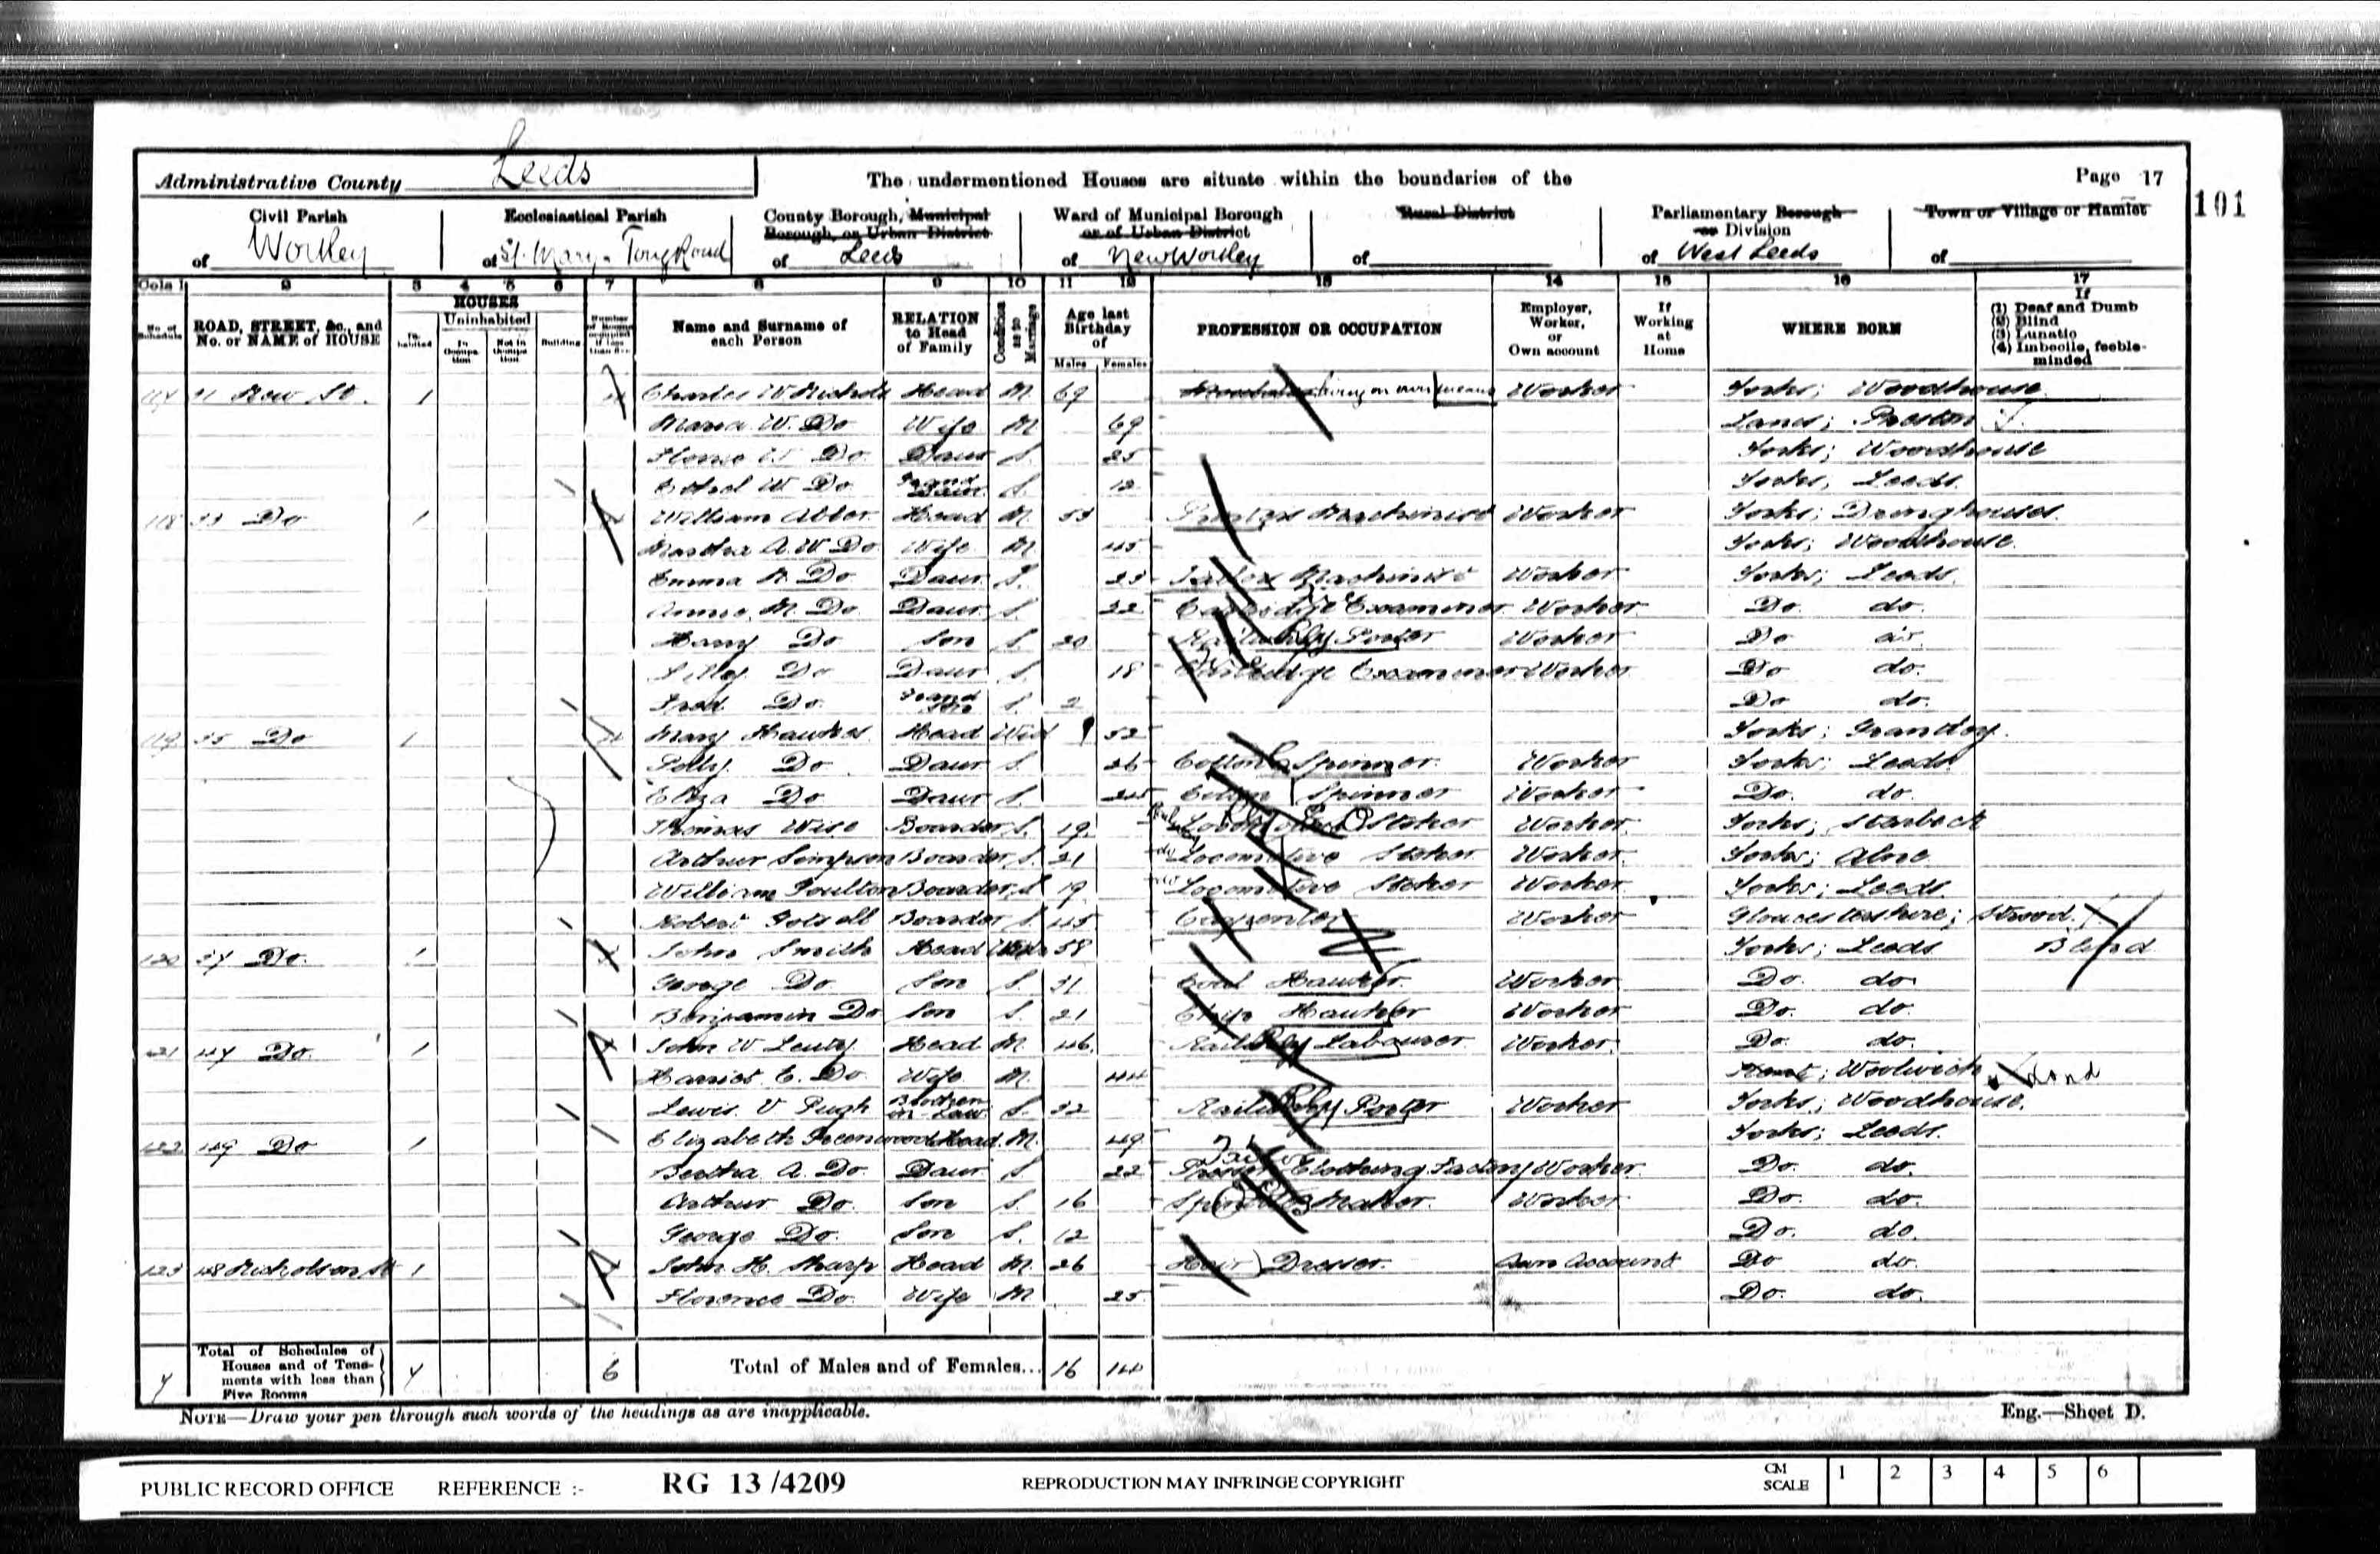 Administrative County Leeds
The undermentioned Houses are situate within the boundaries of the
Page 17
101
Civil Parish of Wortley
Ecclesiastical Parish of St. Mary's Tong Road
County Borough, Municipal Borough, or Urban District of Leeds
Ward of Municipal Borough or of Urban District of New Wortley
Rural District of
Parliamentary Borough or Division of West Leeds
Town or Village or Hamlet of
Cols 1 2 3 4 5 6 7 8 9 10 11 12 13 14 15 16 17
No. of Schedule
ROAD, STREET, &c., and No. or NAME of HOUSE
HOUSES
Inhabited
Uninhabited
In Occupation
Not in Occupation
Building
Number of Rooms occupied if less than five
Name and Surname of each Person
RELATION to Head of Family
Condition as to Marriage
Age last Birthday of
Males Females
PROFESSION OR OCCUPATION
Employer, Worker, or Own account
If Working at Home
WHERE BORN
If
(1) Deaf and Dumb
(2) Blind
(3) Lunatic
(4) Imbecile, feeble-minded
117 31 New St. 1 4 Charles W Nichols Head M. 69 Living on own means Worker Yorks; Woodhouse
Maria W. Do Wife M 69 Lancs; Preston
W Do Daur S. 25 Yorks; Woodhouse
Ethel W Do Grand Daur S. 12 Yorks, Leeds.
118 33 Do 1 4 William Abber Head M. 53 Machinist Worker Yorks; Dringhouses.
Martha A. W Do Wife M 45 Yorks; Woodhouse.
Emma Do Daur. S. 23 Tailox Machinist Worker Yorks; Leeds.
Annie M. Do Daur S. 22 Cartridge Examiner Worker Do. do.
Harry Do Son S. 20 Railway Porter Worker Do do
Lilley Do Daur S. 18 Cartridge Examiner Worker Do do.
Fred Do Grand Son S. 2 Do do.
119 35 Do 1 4 Mary Hawkes Head Wid 52 Yorks; Grantley.
Polly. Do Daur S. 26 Cotton Spinner. Worker Yorks; Leeds.
Eliza Do Daur S. 24 Cotton Spinner Worker Do. do.
Thomas Wise Boarder S. 19 Stoker Worker Yorks; Starbeck
Arthur Simpson Boarder S. 21 do Locomotive Stoker Worker Yorks; Alne
William Poulton Boarder S 19 do Locomotive Stoker Worker Yorks; Leeds.
Robert Boarder S. 45 Carpenter Worker Gloucestershire; Stroud.
120 37 Do. 1 4 John Smith Head 58 Yorks; Leeds Blind
George Do Son S. 31 Coal Hawker. Worker Do. do
Benjamin Do Son S. 21 Hawker Worker Do. do.
121 47 Do. 1 4 John W Lewty Head M 46. Railway Labourer Worker Do. do.
Harriet E. Do Wife M. 44 Kent; Woolwich Lond
Lewis V Pugh Brother in Law S. 32 Railway Porter Worker Yorks; Woodhouse.
122 49 Do 1 Elizabeth Greenwood Head M. 49 Yorks; Leeds.
Bertha A. Do Daur S 22 Clothing Factory Worker. Do. do.
Arthur Do. Son S. 16 Maker. Worker Do. do.
George Do. Son S. 12 Do. do.
123 48 Nicholson St 1 4 John H. Sharp Head M. 26 Hair Dresser. Own Account Do do.
Florence Do. Wife M 25 Do. do.
7 Total of Schedules of Houses and of Tenements with less than Five Rooms 7 6 Total of Males and of Females... 16 14
NOTE—Draw your pen through such words of the headings as are inapplicable.
Eng.—Sheet D.
PUBLIC RECORD OFFICE REFERENCE :- RG 13 /4209 REPRODUCTION MAY INFRINGE COPYRIGHT CM SCALE 1 2 3 4 5 6